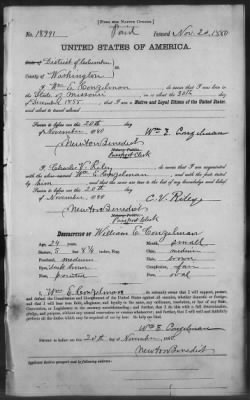 [FORM FOR NATIVE CITIZEN.]
No. 18991 Paid Issued Nov. 20, 1880
UNITED STATES OF AMERICA.
State of District of Columbia
County of Washington
I, Wm E. Congelman, do swear that I was born in
the State of Missouri, on the 30th day
of December 1855, that I am a Native and Loyal Citizen of the United States,
and about to travel abroad
Sworn to before me this 20th day
of November, 1880
Wm E. Congelman
Newton Benedict
Notary Public.
Passport Clerk
I, Charles V. Riley, do swear that I am acquainted
with the above-named Wm E. Congelman, and with the facts stated
by him, and that the same are true to the best of my knowledge and belief.
Sworn to before me this 20th
day
of November, 1880
C. V. Riley
Newton Benedict
Notary Public.
Passport Clerk
DESCRIPTION OF William E. Congelman
Age: 24 years. Mouth: small
Stature: 5 feet 8 1/4 inches, Eng. Chin: medium
Forehead: medium Hair: brown
Eyes: dark brown Complexion: fair
Nose: Face: oval
I, Wm E. Congelman, do solemnly swear that I will support, protect,
and defend the Constitution and Government of the United States against all enemies, whether domestic or foreign;
and that I will bear true faith, allegiance, and loyalty to the same, any ordinance, resolution, or law of any State,
Convention, or Legislature to the contrary notwithstanding; and further, that I do this with a full determination,
pledge, and purpose, without any mental reservation or evasion whatsoever; and further, that I will well and faithfully
perform all the duties which may be required of me by law: So help me God.
Wm E. Congelman
Sworn to before me this
20th day of November, 1880
Newton Benedict